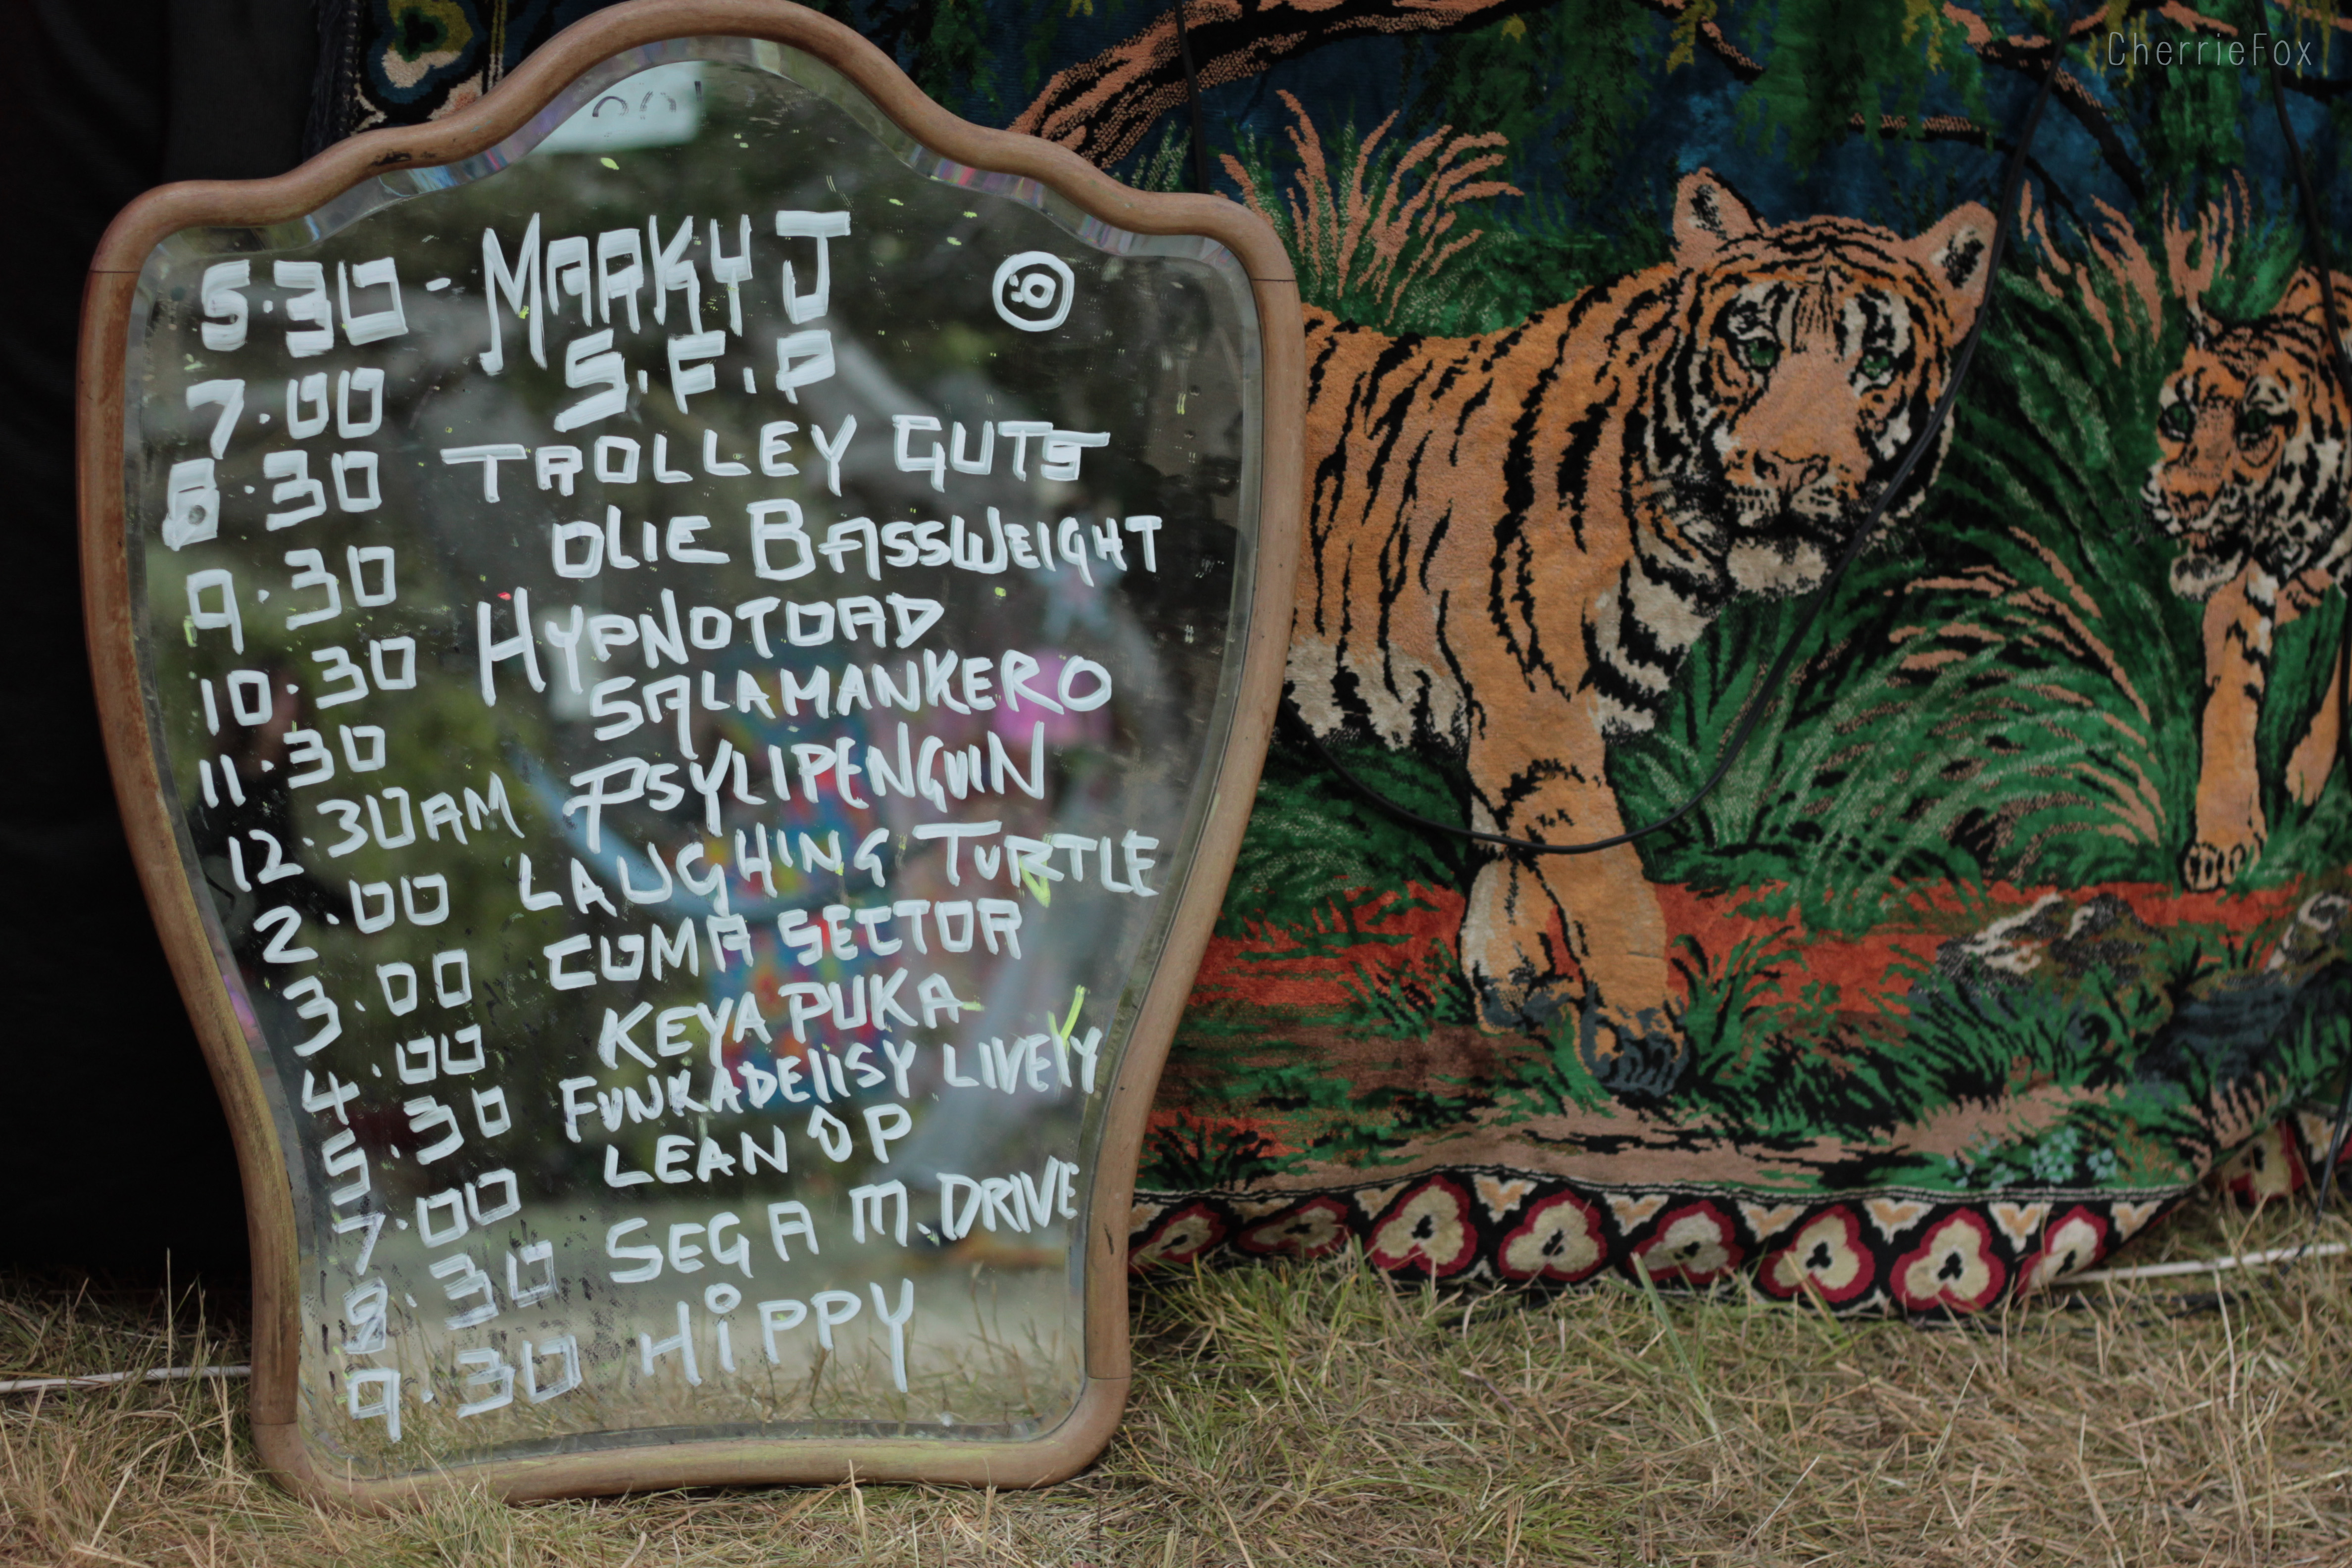 CherrieFox
5.30 - MARKY J
7.00 S.F.P
8.30 TROLLEY GUTS
9.30 OLIE BASSWEIGHT
10.30 HYPNOTOAD
11.30 SALAMANKERO
12.30AM PSYLIPENGUIN
2.00 LAUGHING TURTLE
3.00 COMA SECTOR
4.00 KEYA PUKA
5.30 FUNKADELISY LIVELY
7.00 LEAN UP
8.30 SEGA M.DRIVE
9.30 HiPPY